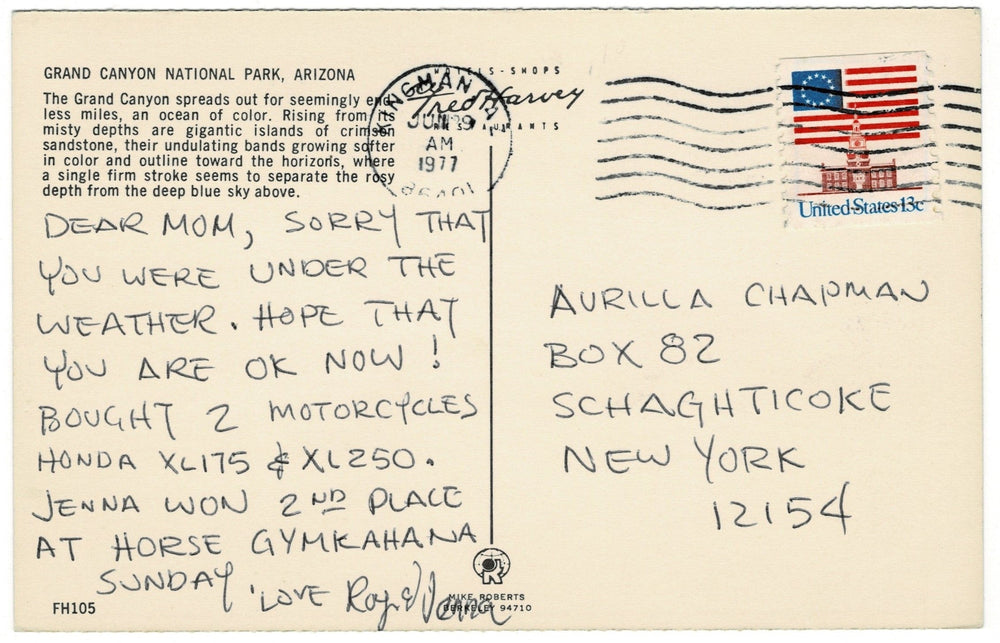 GRAND CANYON NATIONAL PARK, ARIZONA
The Grand Canyon spreads out for seemingly end-
less miles, an ocean of color. Rising from its
misty depths are gigantic islands of crimson
sandstone, their undulating bands growing softer
in color and outline toward the horizons, where
a single firm stroke seems to separate the rosy
depth from the deep blue sky above.
DEAR MOM, SORRY THAT
YOU WERE UNDER THE
WEATHER. HOPE THAT
YOU ARE OK NOW!
BOUGHT 2 MOTORCYCLES
HONDA XL175 & XL250.
JENNA WON 2ND PLACE
AT HORSE GYMKAHANA
SUNDAY 'LOVE Roy & Jenna
FH105
KINGMAN
JUN 29
AM
1977
HOTELS-SHOPS
Fred Harvey
RESTAURANTS
United States 13c
AURILLA CHAPMAN
BOX 82
SCHAGHTICOKE
NEW YORK
12154
MIKE ROBERTS
BERKELEY 94710